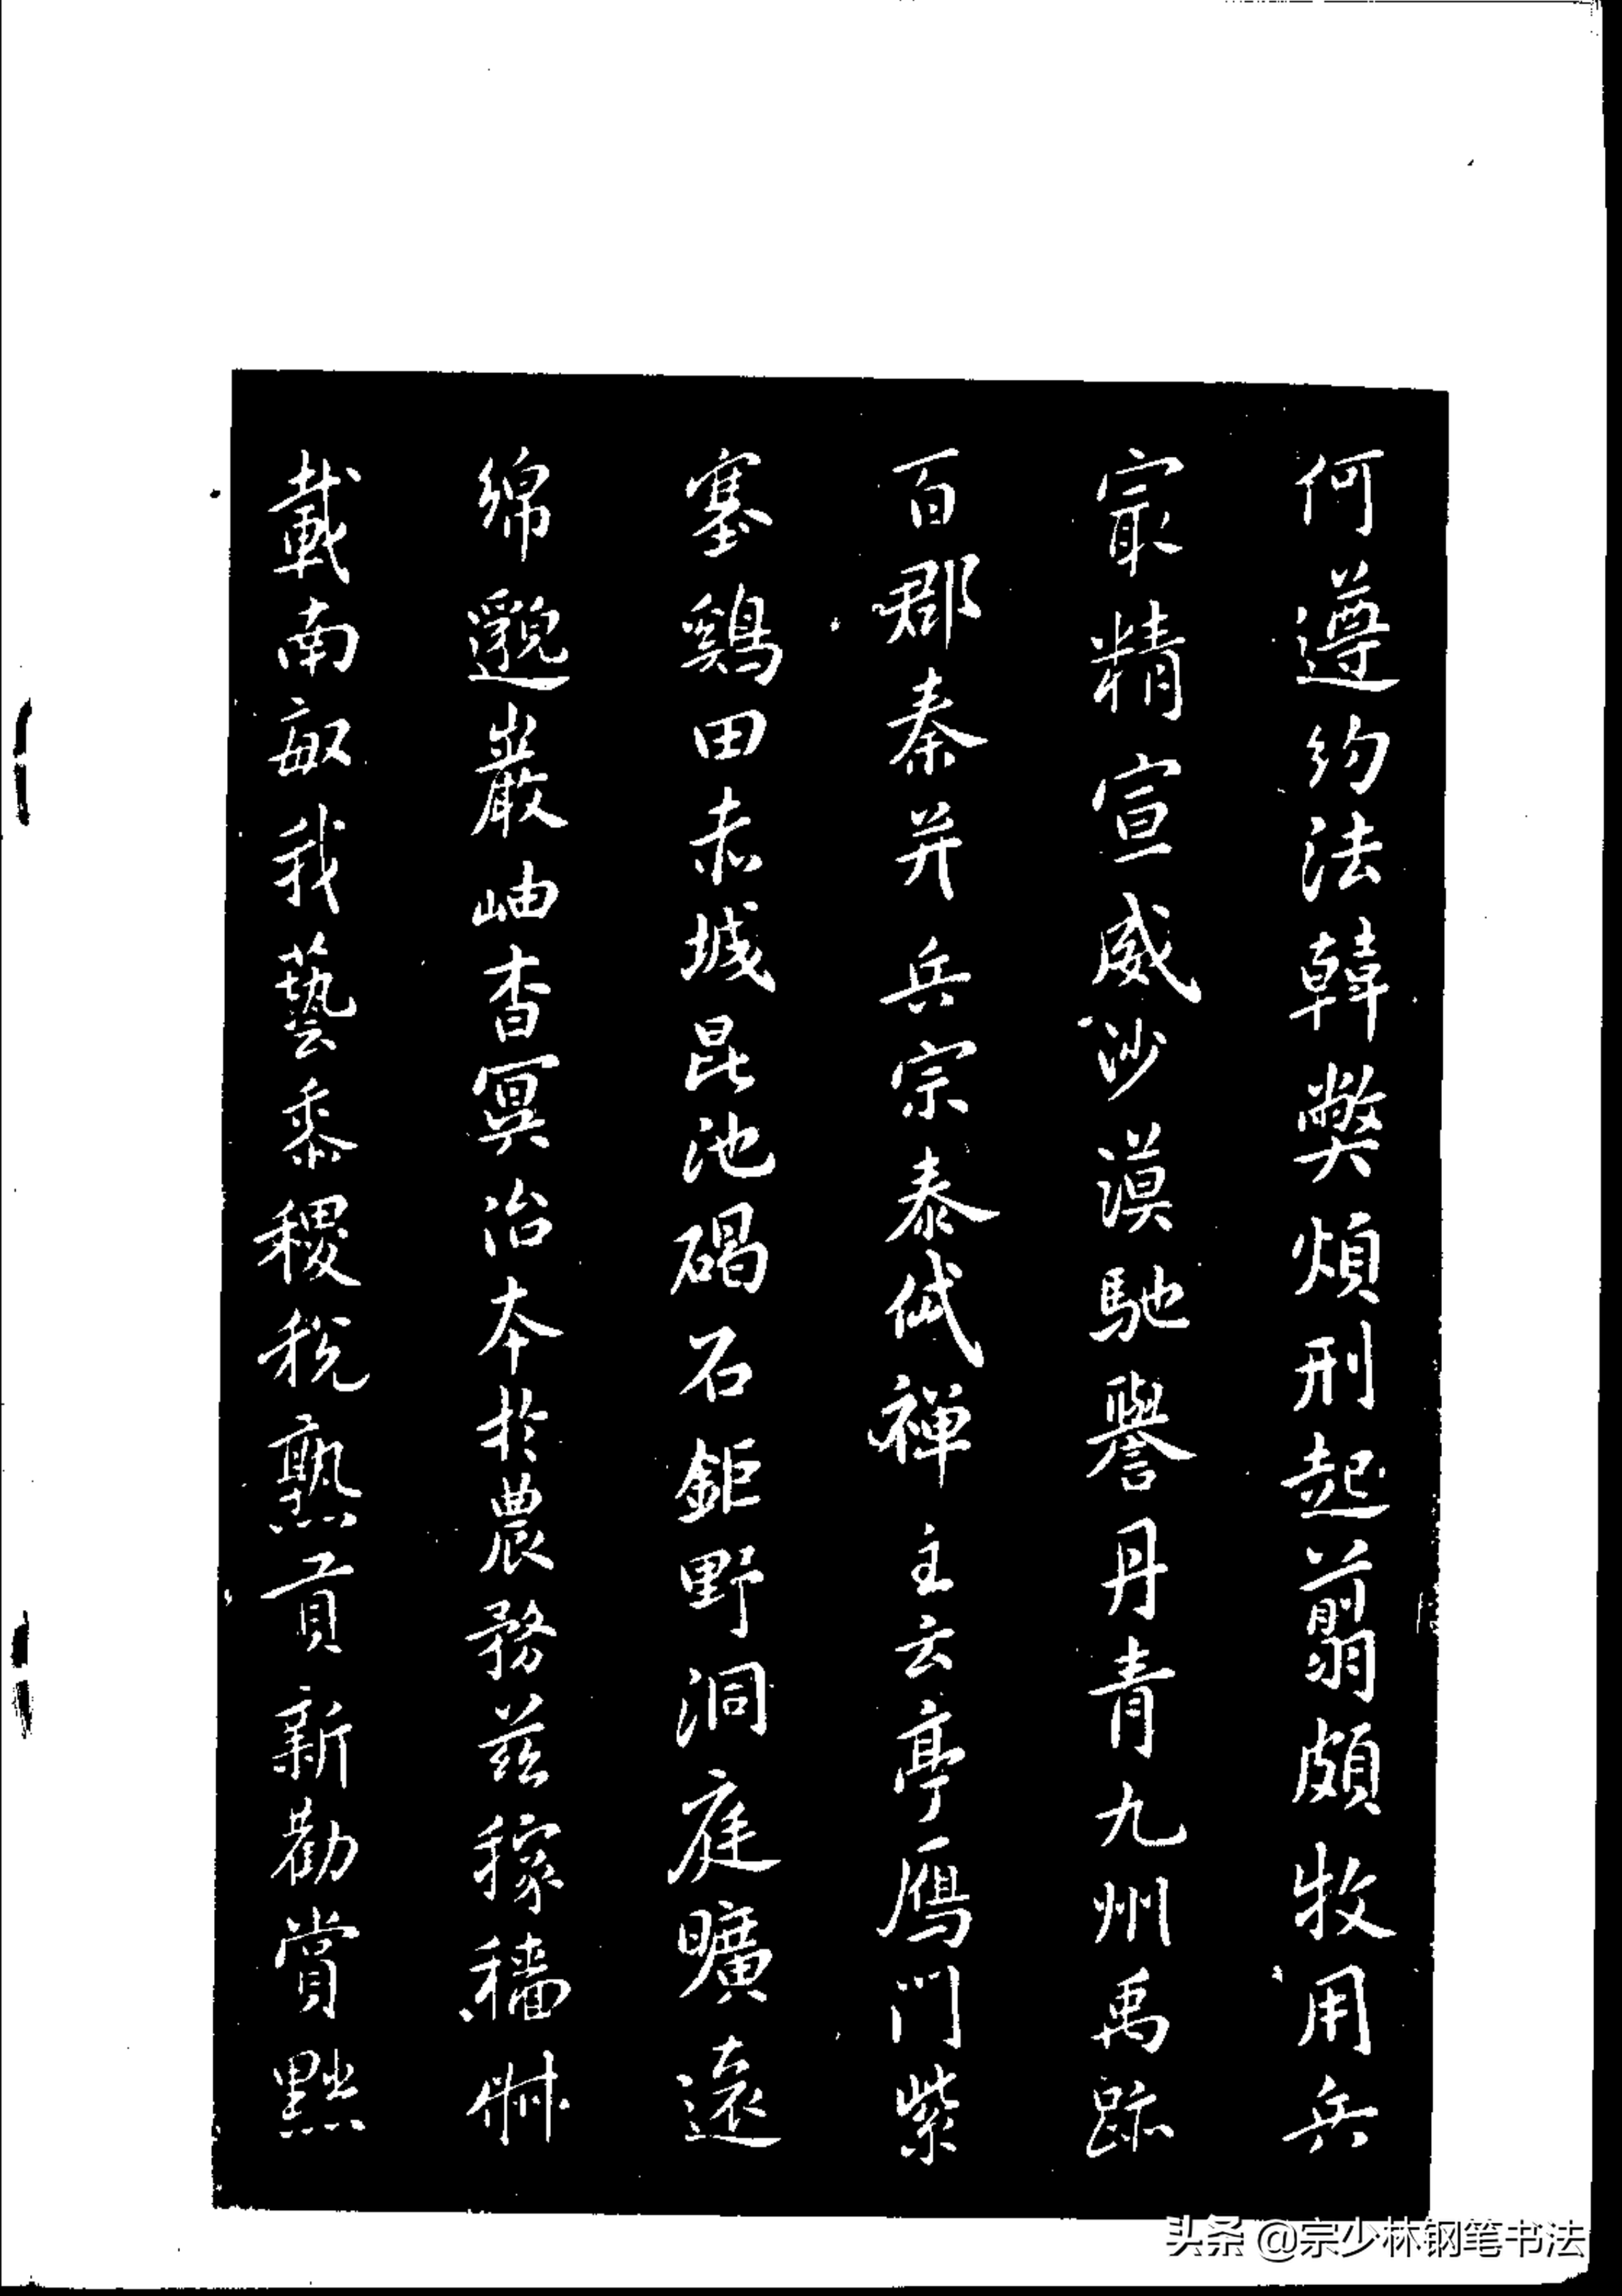 何遵約法韓弊煩刑起翦頗牧用兵
㝡精宣威沙漠馳譽丹青九州禹跡
百郡秦并岳宗泰岱禪主云亭鴈門紫
塞鷄田赤城昆池碣石鉅野洞庭曠遠
綿邈巖岫杳冥治本於農務茲稼穡俶
載南畝我藝黍稷稅熟貢新勸賞黜
头条 @宗少林钢笔书法